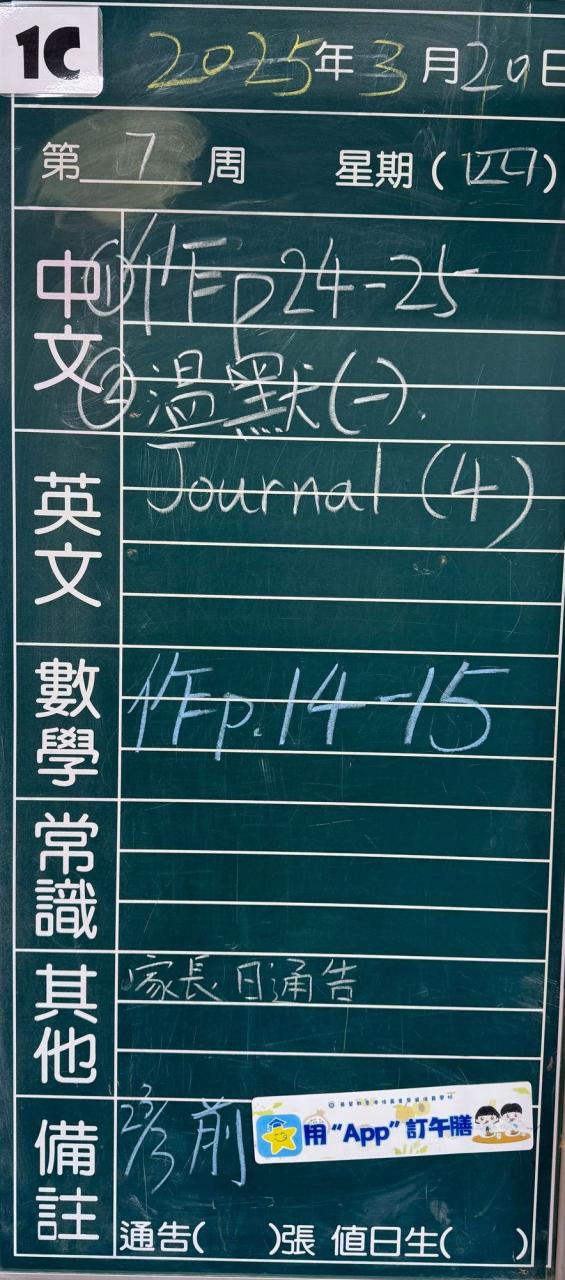 1C
2025年3月20日
第7周 星期(四)
中文
①作P24-25
②溫默(一).
英文
Journal (4)
數學
作p.14-15
常識
其他
家長日通告
備註
前
用“App”訂午膳
通告( )張 值日生( )